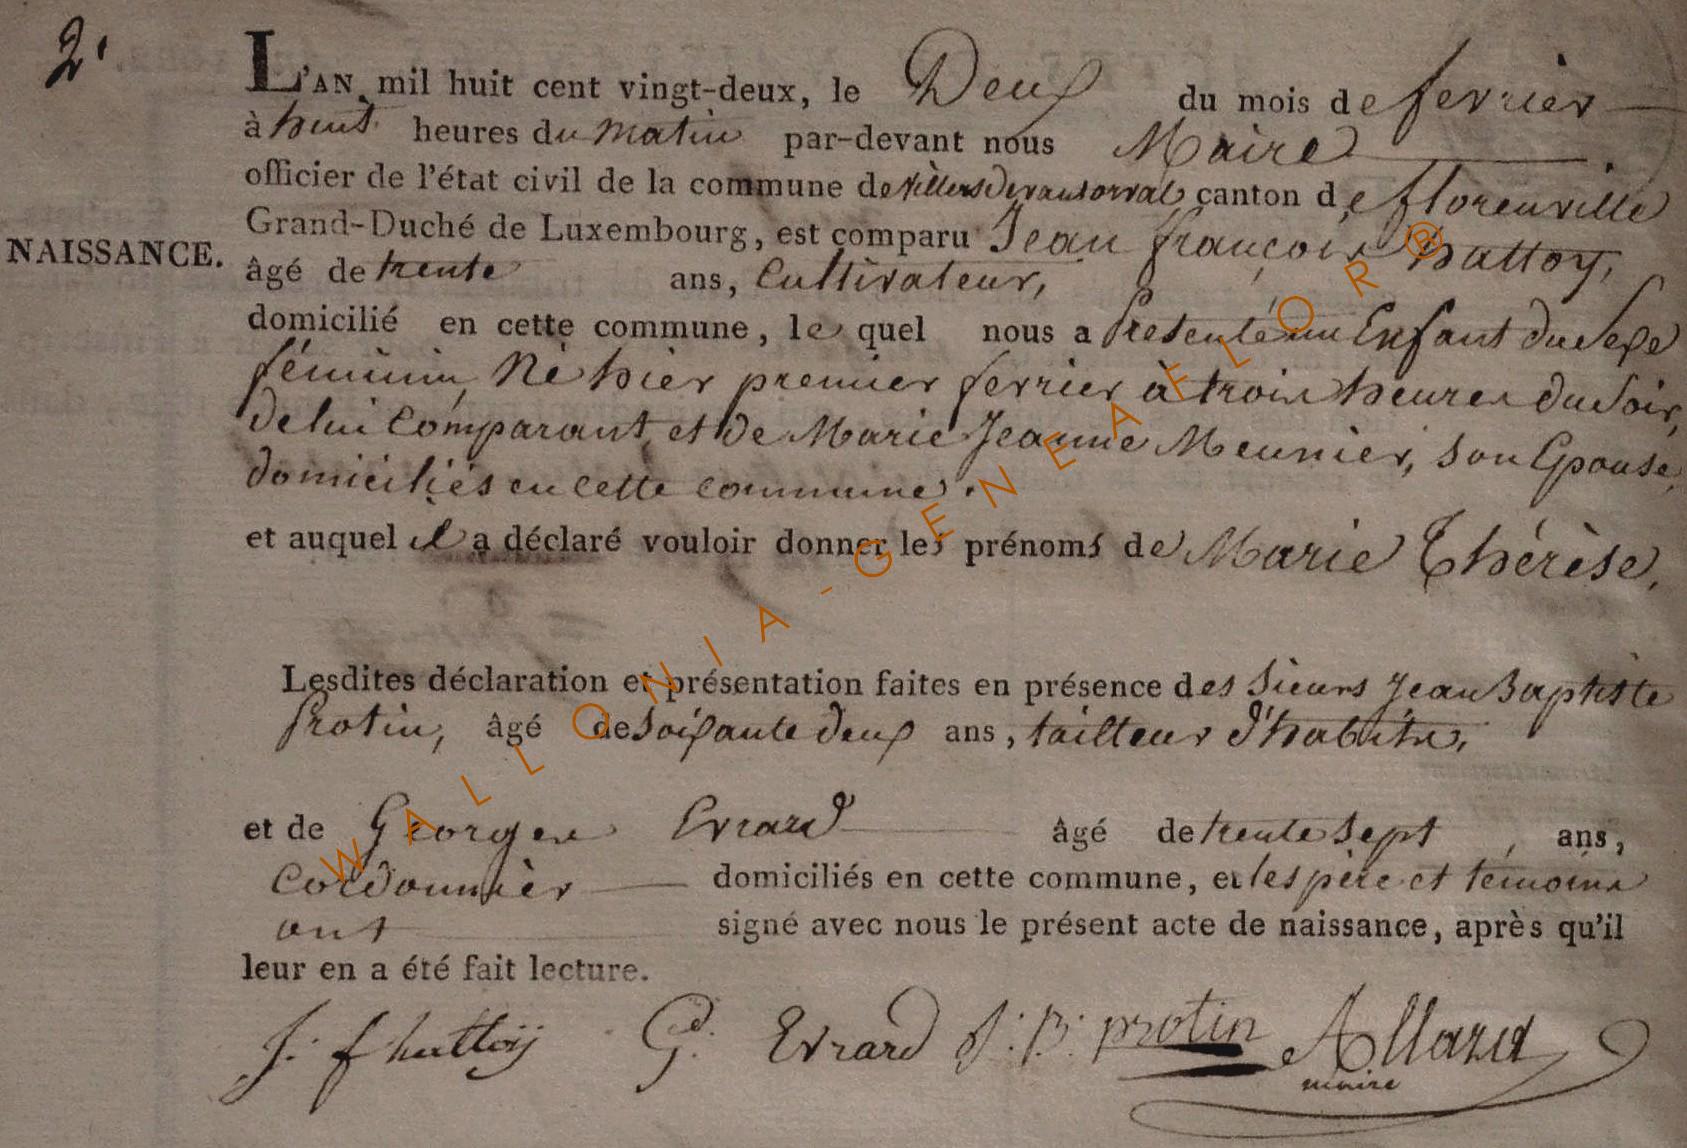 2.
L'AN mil huit cent vingt-deux, le Deux du mois de fevrier
à huit heures du matin par-devant nous Maire
officier de l'état civil de la commune de Villers devant orval canton de florenville
NAISSANCE.
Grand-Duché de Luxembourg, est comparu Jean françois hattoy,
âgé de trente ans, Cultivateur,
domicilié en cette commune, le quel nous a Presenté un Enfant du Sexe
féminin, Né hier premier fevrier à trois heures du Soir,
de lui Comparant, et de Marie Jeanne Meunier, son Epouse,
domiciliés en cette commune.
et auquel il a déclaré vouloir donner les prénoms de Marie Thérèse,
Lesdites déclaration et présentation faites en présence des Sieurs Jean Baptiste
Protin, âgé de Soixante deux ans, tailleur d'habits,
et de Georges Evrard âgé de trente Sept ans,
Cordonnièr domiciliés en cette commune, et les père et témoins
ont signé avec nous le présent acte de naissance, après qu'il
leur en a été fait lecture.
J. f hattoij G. Evrard J. B. protin Allard
maire
WALLONIA-GENEAFLOR®